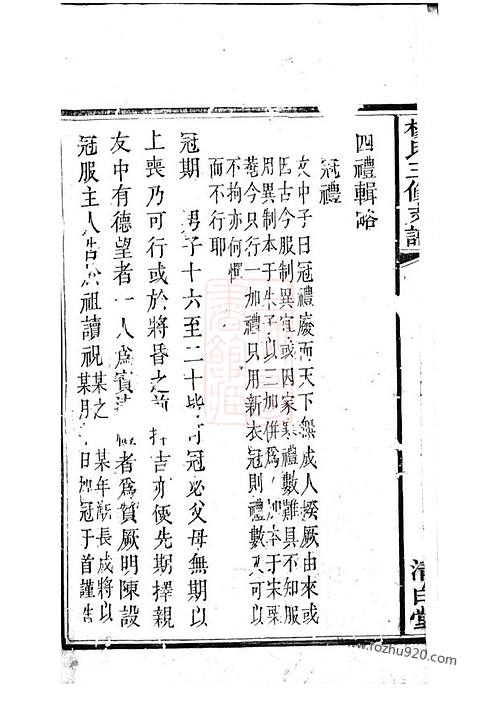 四禮輯畧
冠禮
文中子曰冠禮廢而天下無成人揆厥由來或
因古今服制異宜或因家寒禮數難具不知服
用異制本于朱子以三加併爲一加本于宋栗
菴今只行一加禮只用新衣冠則禮數又可以
不拘亦何憚
而不行耶
冠期 男子十六至二十皆可冠必父母無期以
上喪乃可行或於將昏之前擇吉亦便先期擇親
友中有德望者一人爲賓 者爲贊厥明陳設
冠服主人告於祖讀祝某之 某年漸長成將以
某月 日加冠于首謹告
楊氏三修支譜
清白堂
www.rozhu920.com